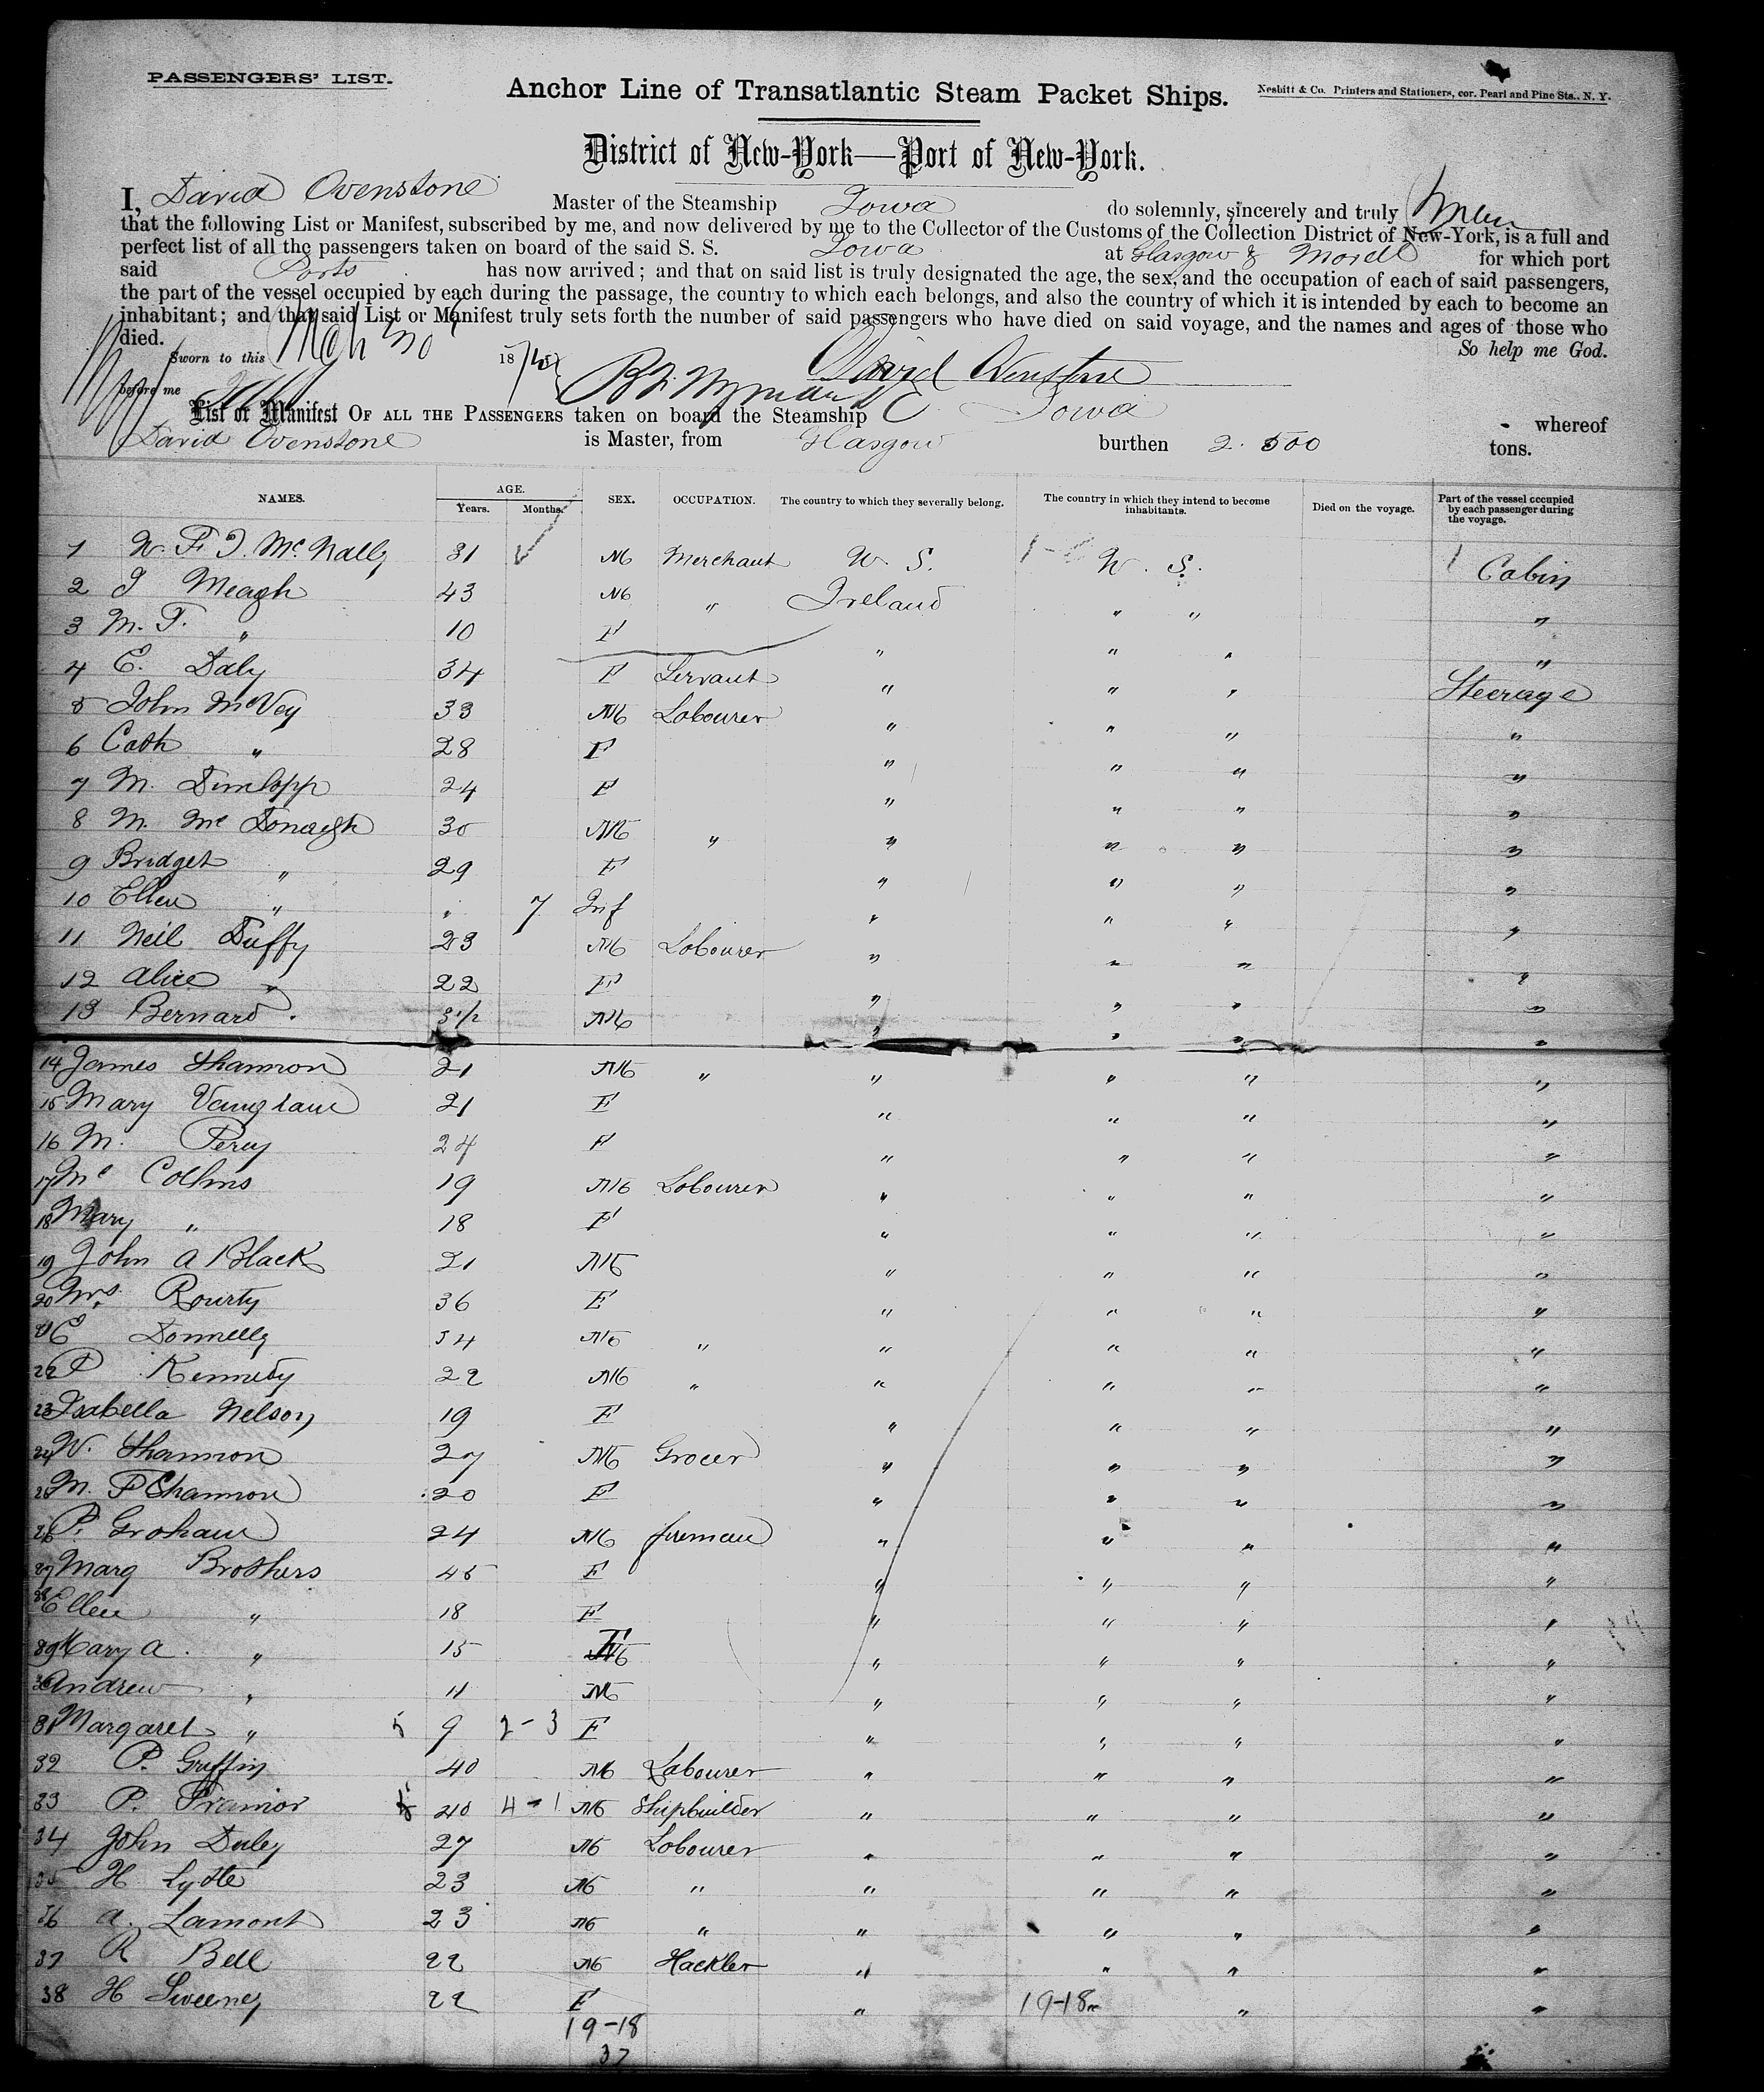 PASSENGERS' LIST.
Anchor Line of Transatlantic Steam Packet Ships.
Nesbitt & Co. Printers and Stationers, cor. Pearl and Pine Sts., N. Y.
District of New-York—Port of New-York.
I, David Ovenstone Master of the Steamship Iowa do solemnly, sincerely and truly
that the following List or Manifest, subscribed by me, and now delivered by me to the Collector of the Customs of the Collection District of New-York, is a full and
perfect list of all the passengers taken on board of the said S. S. Iowa at Glasgow & Moville for which port
said Ports has now arrived; and that on said list is truly designated the age, the sex, and the occupation of each of said passengers,
the part of the vessel occupied by each during the passage, the country to which each belongs, and also the country of which it is intended by each to become an
inhabitant; and that said List or Manifest truly sets forth the number of said passengers who have died on said voyage, and the names and ages of those who
died. So help me God.
Sworn to this 18
David Ovenstone
before me
List or Manifest OF ALL THE PASSENGERS taken on board the Steamship Iowa whereof
David Ovenstone is Master, from Glasgow burthen 2.500 tons.
NAMES. AGE. Years. Months. SEX. OCCUPATION. The country to which they severally belong. The country in which they intend to become inhabitants. Died on the voyage. Part of the vessel occupied by each passenger during the voyage.
1 Mc Nally 31 M Merchant U. S. U. S. Cabin
2 J Meagh 43 M " Ireland " " "
3 M. F. " 10 F " " " "
4 E. Daly 34 F Servant " " " Steerage
5 John McVey 33 M Labourer " " " "
6 Cath " 28 F " " " "
7 M. Dunlopp 24 F " " " "
8 M. Mc Donaugh 30 M " " " " "
9 Bridget " 29 F " " " "
10 Ellen " " 7 Inf " " " "
11 Neil Duffy 23 M Labourer " " " "
12 Alice " 22 F " " " "
13 Bernard " 3 1/2 M " " " "
14 James Shannon 21 M " " " " "
15 Mary 21 F " " " "
16 M. Percy 24 F " " " "
17 Mc Collins 19 M Labourer " " " "
18 Mary " 18 F " " " "
19 John A Black 21 M " " " "
20 Mrs. Rourty 36 F " " " "
21 E Donnelly 34 M " " " " "
22 P Kennedy 22 M " " " " "
23 Isabella Nelson 19 F " " " "
24 W. Shannon 27 M Grocer " " " "
25 M. F Shannon 20 F " " " "
26 P. Graham 24 M fireman " " " "
27 Mary Brothers 45 F " " " "
28 Ellen " 18 F " " " "
29 Mary A. " 15 F " " " "
30 Andrew " 11 M " " " "
31 Margaret " 5 9 2-3 F " " " "
32 P. Griffin 40 M Labourer " " " "
33 P. 40 4-1 M Shipbuilder " " " "
34 John Duley 27 M Labourer " " " "
35 H Lytle 23 M " " " " "
36 A. Lamont 23 M " " " " "
37 R Bell 22 M Hackler " " " "
38 H Sweeney 22 F " 19-18 " "
19-18
37